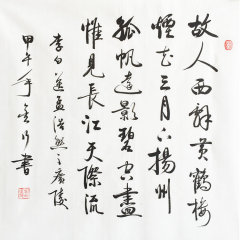 故人西辞黄鹤楼
烟花三月下扬州
孤帆远影碧空盡
惟見長江天際流
李白送孟浩然之廣陵
甲午年 書